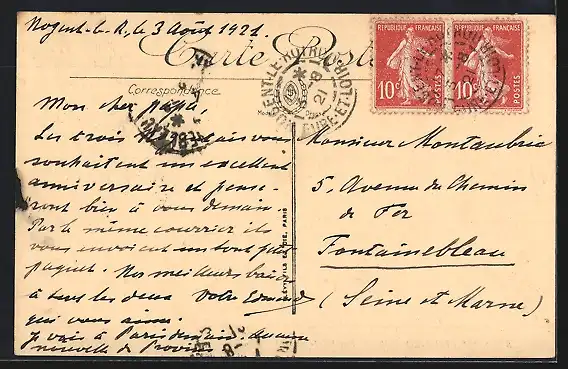 Nogent-le-R, le 3 Août 1921.
Carte Postale
Correspondance
Mon cher papa,
Les trois vous
souhaitent un excellent
anniversaire et pense-
ront bien à vous demain.
Par le même courrier ils
vous envoient un tout petit
paquet. Nos meilleurs baisers
à tous les deux Votre Edmond
qui vous aime.
Je vais à Paris demain. aucune
nouvelle de
NOGENT-LE-ROTROU
EURE-ET-L
21
RÉPUBLIQUE FRANÇAISE
10c
POSTES
RÉPUBLIQUE FRANÇAISE
10c
POSTES
PARIS
Monsieur Montaubric
5, Avenue du Chemin
de Fer
Fontainebleau
(Seine et Marne)